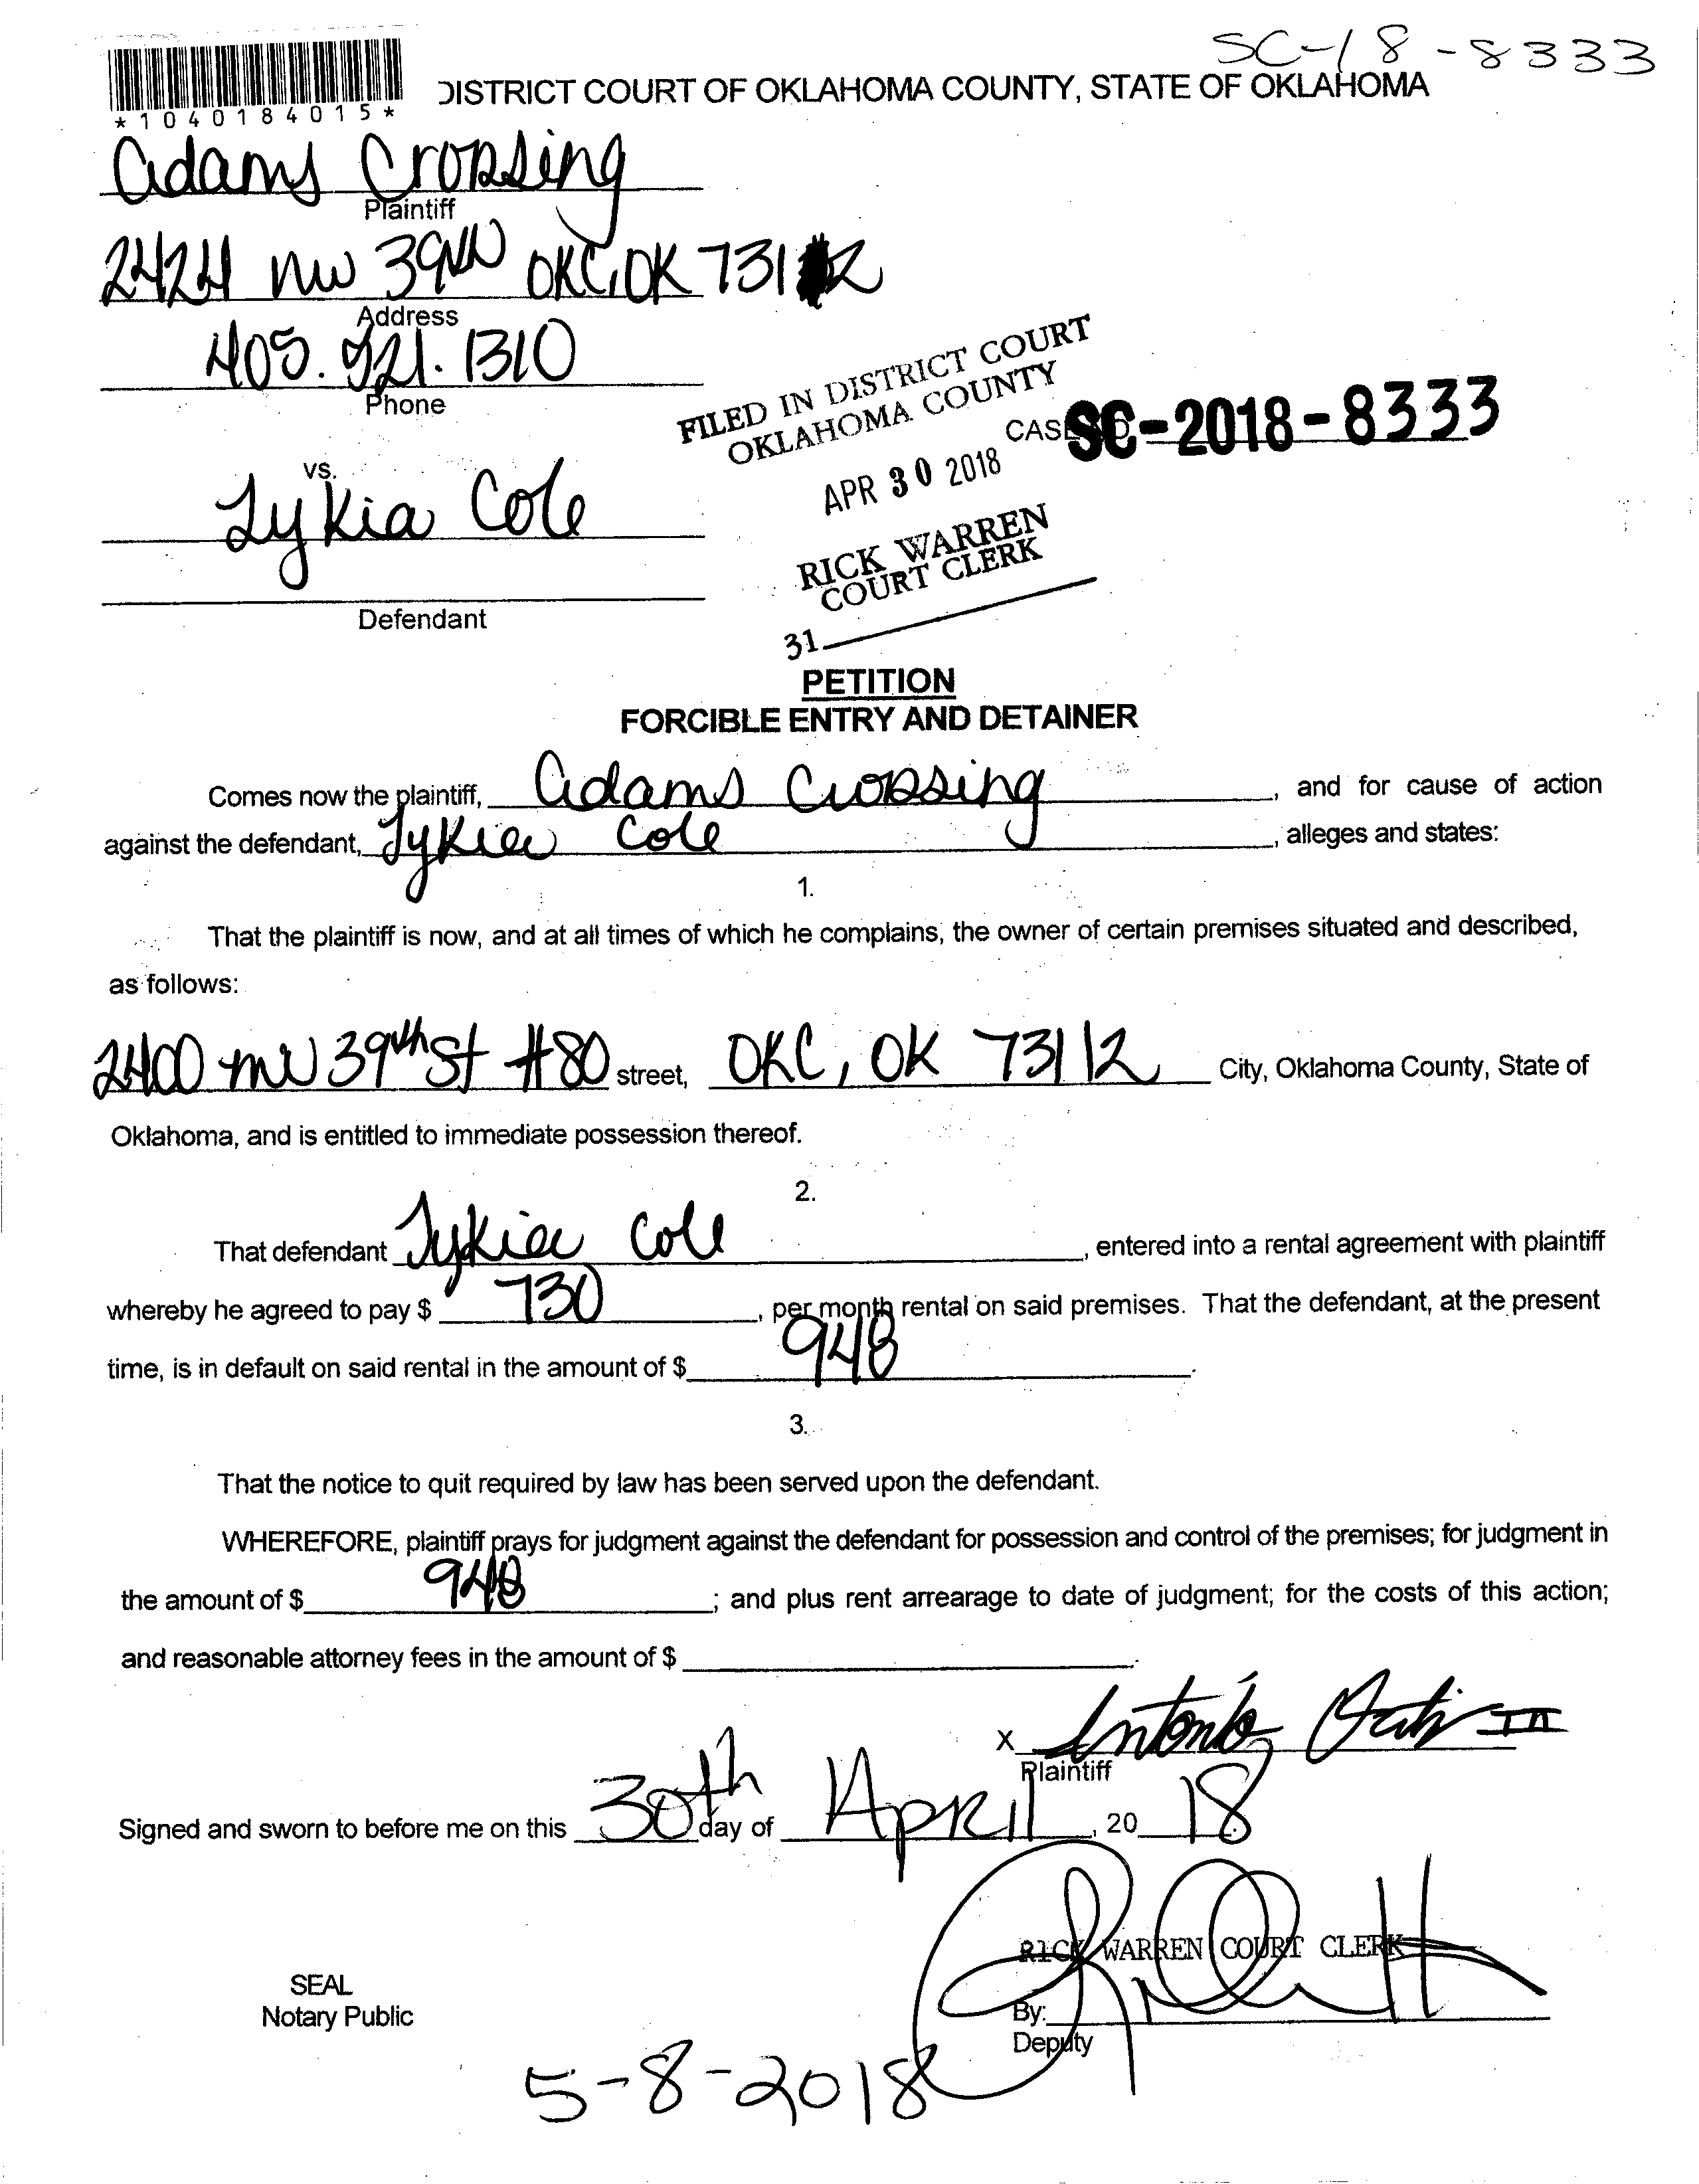 SC-18-8333
*1040184015*
DISTRICT COURT OF OKLAHOMA COUNTY, STATE OF OKLAHOMA
Adams Crossing
Plaintiff
2424 NW 39th OKC, OK 73112
Address
405. 521. 1310
Phone
FILED IN DISTRICT COURT
OKLAHOMA COUNTY
CASE SC-2018-8333
APR 30 2018
vs.
Tykia Cole
RICK WARREN
COURT CLERK
Defendant
31
PETITION
FORCIBLE ENTRY AND DETAINER
Comes now the plaintiff, Adams Crossing, and for cause of action
against the defendant, Tykia Cole, alleges and states:
1.
That the plaintiff is now, and at all times of which he complains, the owner of certain premises situated and described,
as follows:
2400 NW 39th St #80 street, OKC, OK 73112 City, Oklahoma County, State of
Oklahoma, and is entitled to immediate possession thereof.
2.
That defendant Tykia Cole, entered into a rental agreement with plaintiff
whereby he agreed to pay $ 730, per month rental on said premises. That the defendant, at the present
time, is in default on said rental in the amount of $ 948.
3.
That the notice to quit required by law has been served upon the defendant.
WHEREFORE, plaintiff prays for judgment against the defendant for possession and control of the premises; for judgment in
the amount of $ 948; and plus rent arrearage to date of judgment; for the costs of this action;
and reasonable attorney fees in the amount of $
X Antonio
Plaintiff
Signed and sworn to before me on this 30th day of April, 20 18
RICK WARREN COURT CLERK
SEAL
Notary Public
By:
Deputy
5-8-2018